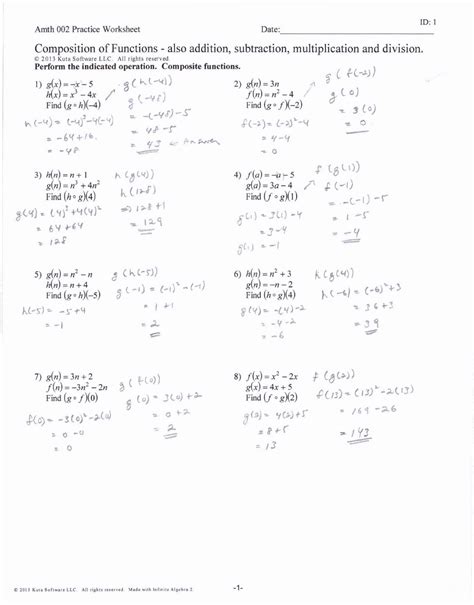 ID: 1
Amth 002 Practice Worksheet Date:
Composition of Functions - also addition, subtraction, multiplication and division.
© 2013 Kuta Software LLC. All rights reserved.
Perform the indicated operation. Composite functions.
1) g(x) = -x - 5
h(x) = x³ - 4x
Find (g ∘ h)(-4)
g(h(-4))
g(-48)
h(-4) = (-4)³-4(-4)
= -64+16
= -48
= -(-48)-5
= 48-5
= 43 ← Answer
2) g(n) = 3n
f(n) = n² - 4
Find (g ∘ f)(-2)
g(f(-2))
g(0)
= 3(0)
= 0
f(-2) = (-2)²-4
= 4-4
= 0
3) h(n) = n + 1
g(n) = n³ + 4n²
Find (h ∘ g)(4)
h(g(4))
h(128)
⇒ 128+1
= 129
g(4) = (4)³+4(4)²
= 64+64
= 128
4) f(a) = -a - 5
g(a) = 3a - 4
Find (f ∘ g)(1)
f(g(1))
f(-1)
= -(-1)-5
= 1-5
= -4
g(1) = 3(1)-4
g(1) = -1
5) g(n) = n² - n
h(n) = n + 4
Find (g ∘ h)(-5)
g(h(-5))
g(-1) = (-1)²-(-1)
= 1+1
= 2
h(-5) = -5+4
= -1
6) h(n) = n² + 3
g(n) = -n - 2
Find (h ∘ g)(4)
h(g(4))
h(-6) = (-6)²+3
= 36+3
= 39
g(4) = -(4)-2
= -4-2
= -6
7) g(n) = 3n + 2
f(n) = -3n² - 2n
Find (g ∘ f)(0)
g(f(0))
g(0) = 3(0)+2
= 0+2
= 2
f(0) = -3(0)²-2(0)
= 0-0
= 0
8) f(x) = x² - 2x
g(x) = 4x + 5
Find (f ∘ g)(2)
f(g(2))
f(13) = (13)²-2(13)
= 169-26
= 143
g(2) = 4(2)+5
= 8+5
= 13
© 2013 Kuta Software LLC. All rights reserved. Made with Infinite Algebra 2.
-1-